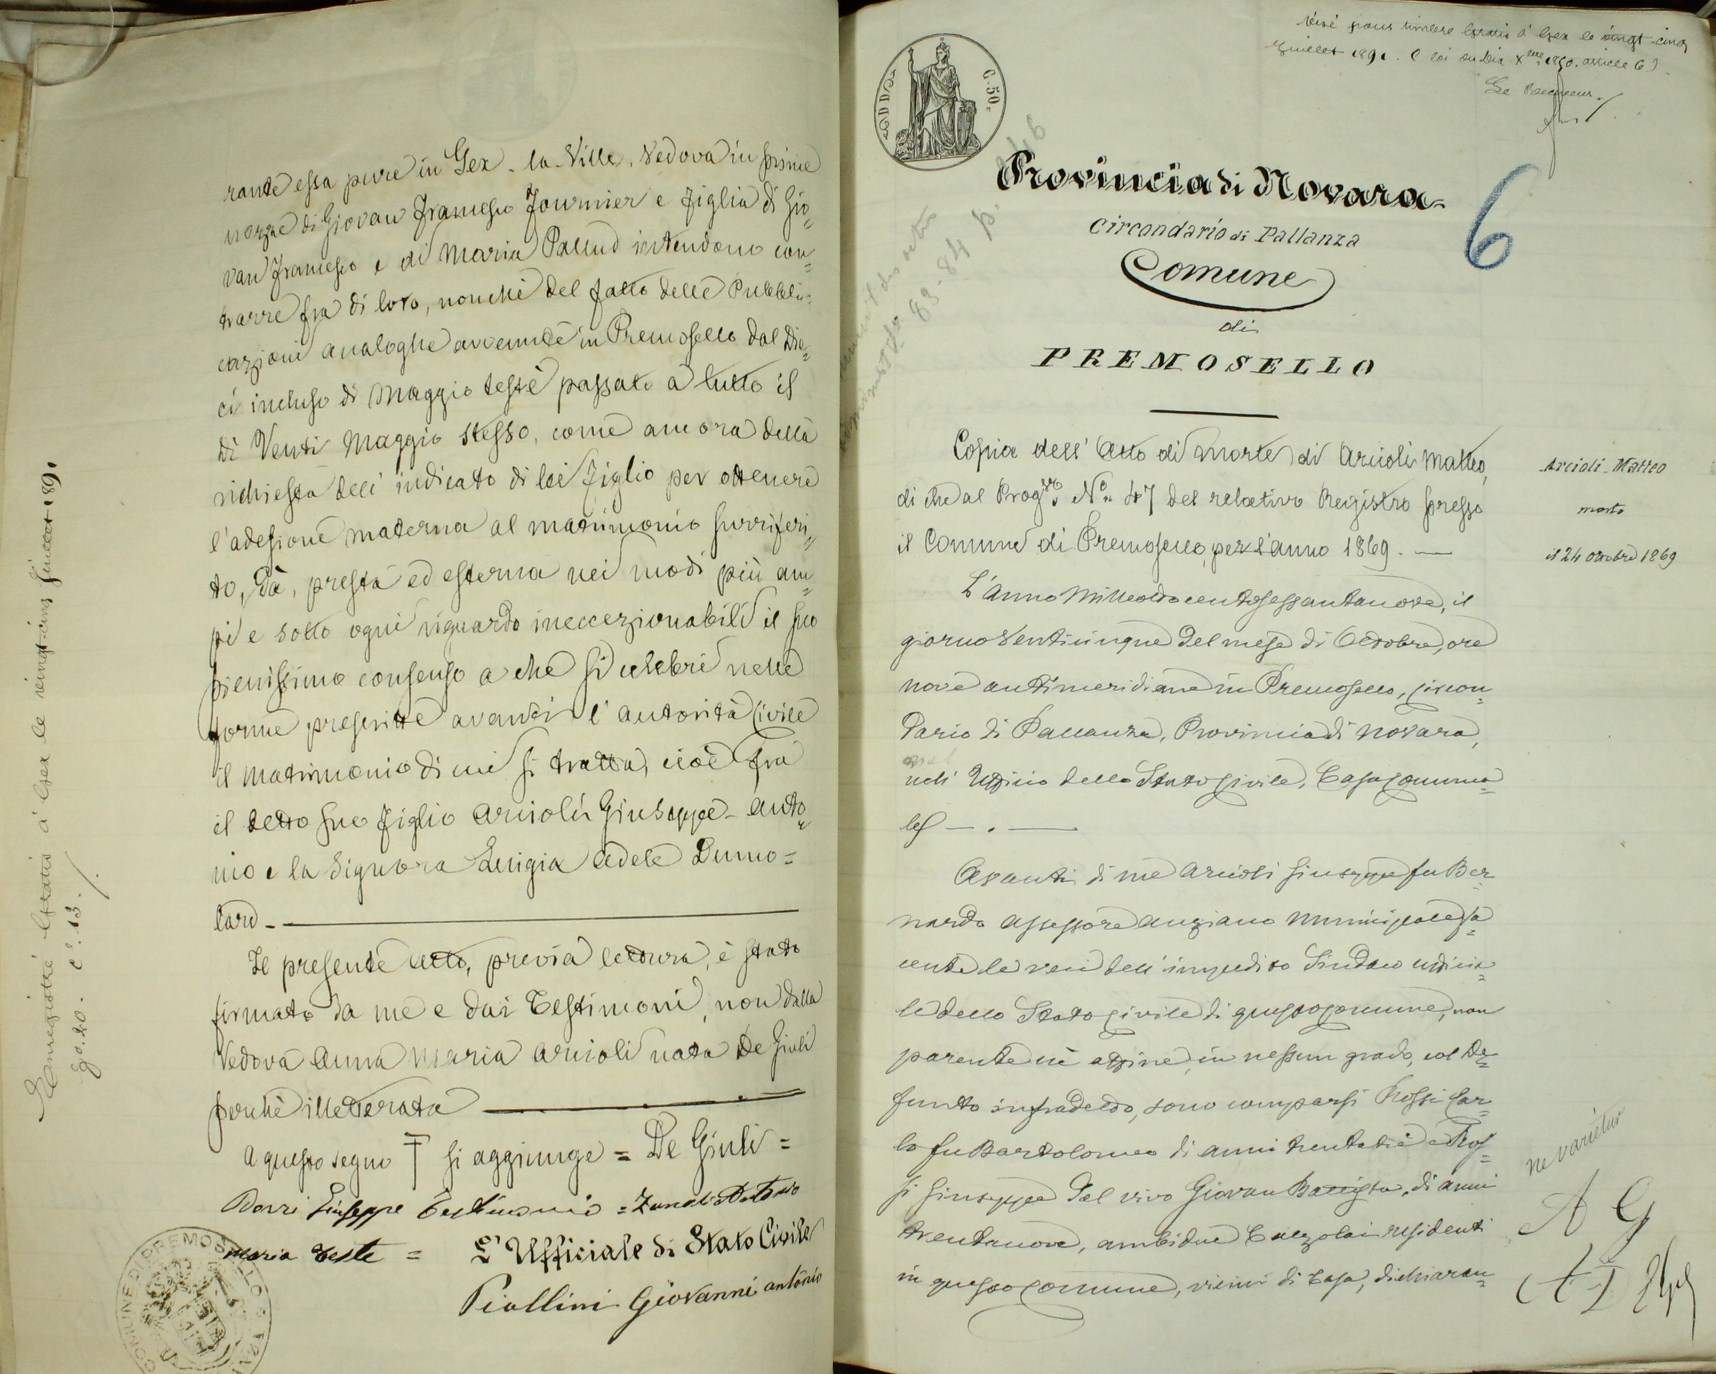 rante essa pure in Gex-la-Ville, Vedova in prime
nozze di Giovan Francesco Fournier e figlia di Gio=
van Francesco e di Maria Pallud intendono con=
trarre fra di loro, nonchè del fatto delle Pubbli=
cazioni analoghe avvenute in Premosello dal Die=
ci incluso di Maggio testè passato a tutto il
dì Venti Maggio stesso, come ancora della
richiesta dell' indicato di lei figlio per ottenere
l'adesione materna al matrimonio surriferi=
to, Dà, presta ed esterna nei modi più am=
pi e sotto ogni riguardo ineccezionabili il suo
pienissimo consenso a che si celebri nelle
forme prescritte avanti l'autorità Civile
il matrimonio di cui si tratta, cioè fra
il detto suo figlio Arcioli Giuseppe-Anto=
nio e la Signora Luigia Adele Dumo=
lard -
Il presente atto, previa lettura, è stato
firmato da me e dai Testimoni, non dalla
Vedova Anna Maria Arcioli nata De Giuli
perchè illetterata
A questo segno † si aggiunge = De Giuli =
Borri Giuseppe Testimonio = Zanoli Antonio
Maria Teste = L'Ufficiale di Stato Civile
Piollini Giovanni Antonio
COMUNE DI PREMOSELLO
à Gex le vingt-cinq juillet 1891
C. 50.
Visé pour timbre gratis à Gex le vingt-cinq
Juillet 1891. (loi du Dix Xbre 1850. article 6).
Le Receveur
6
Provincia di Novara
Circondario di Pallanza
Comune
di
PREMOSELLO
Copia dell' Atto di Morte di Arcioli Matteo,
di che al Progvo No 47 del relativo Registro presso
il Comune di Premosello, per l'anno 1869.
Arcioli Matteo
morto
il 24 ottobre 1869
L'anno Milleottocentosessantanove, il
giorno Venticinque del mese di Ottobre, ore
nove antimeridiane in Premosello, Circon=
dario di Pallanza, Provincia di Novara,
nell' Uffizio dello Stato Civile, Casa Comuna=
le
Avanti di me Arcioli Giuseppe fu Ber=
nardo Assessore anziano Municipale fa=
cente le veci dell' impedito Sindaco uffizia=
le dello Stato Civile di questo Comune, non
parente nè affine, in nessun grado, col De=
funto infradetto, sono comparsi Rossi Car=
lo fu Bartolomeo di anni trentatre e Ros=
si Giuseppe del vivo Giovan Battista, di anni
trentanove, ambidue Calzolai residenti
in questo Comune, vicini di Casa, dichiaran=
ne varietur
A G